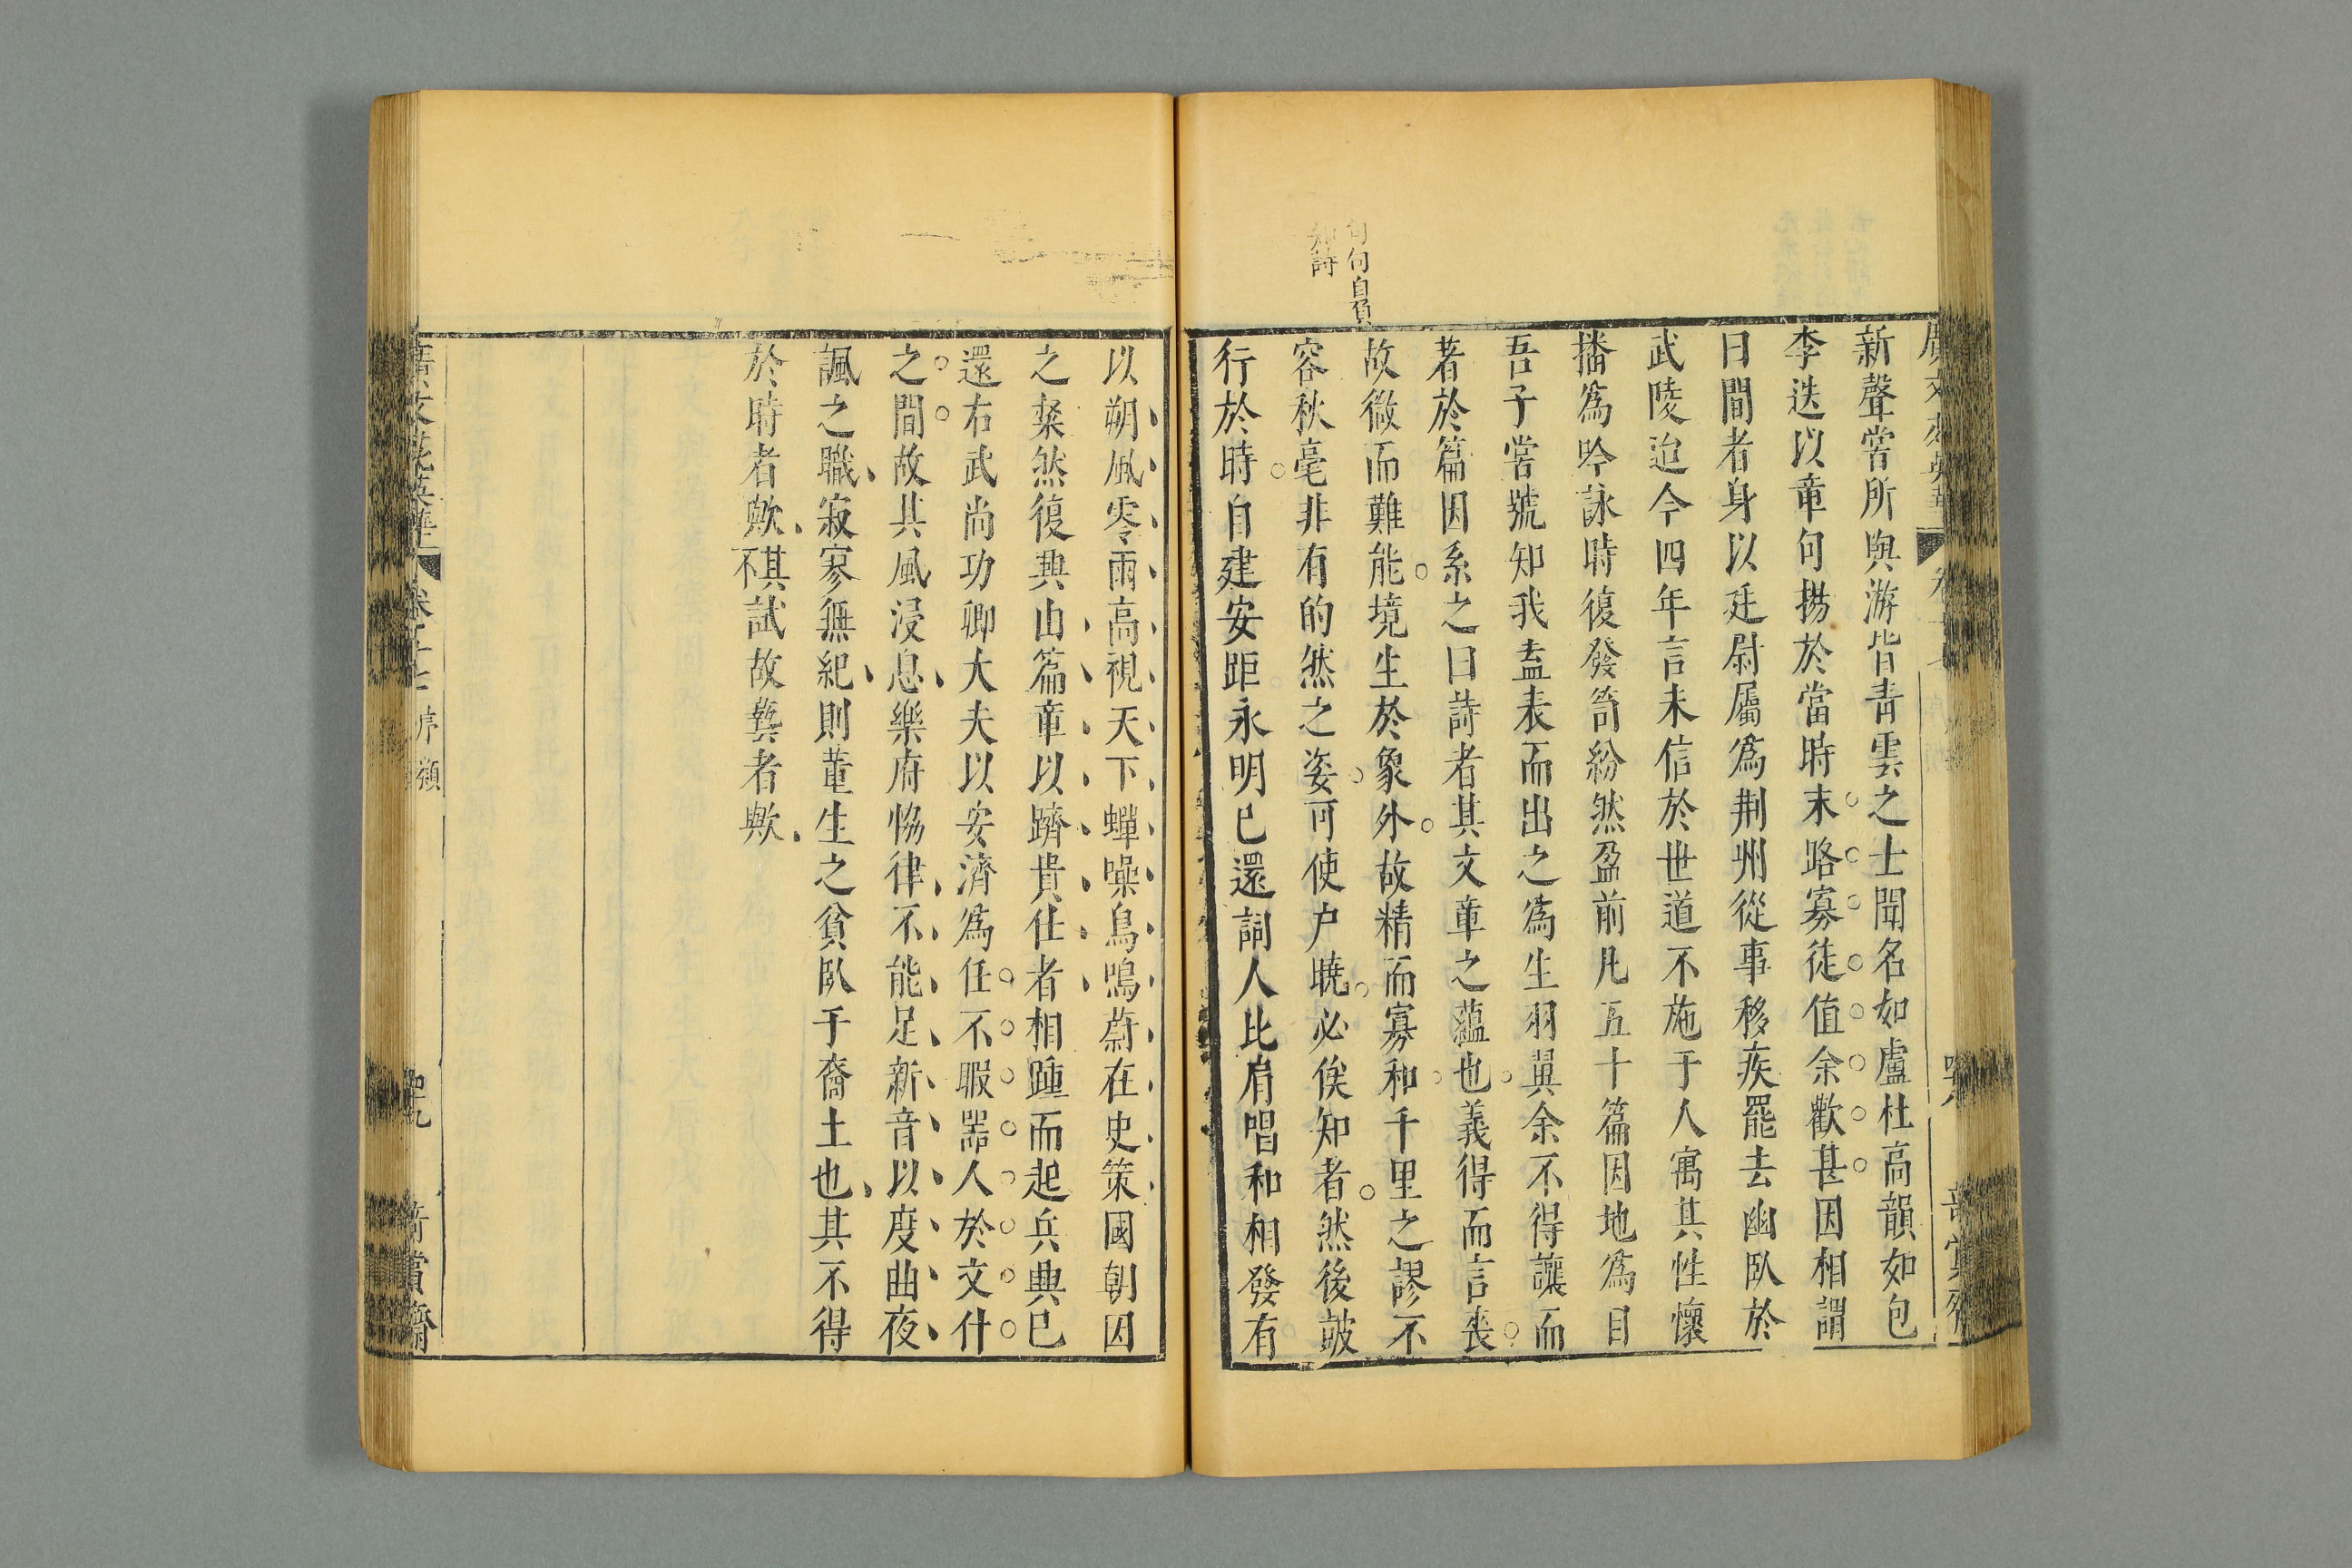 句句自負
知詩
新聲嘗所與游皆青雲之士聞名如盧杜高韻如包
李迭以章句揚於當時末路寡徒值余歡甚因相謂
曰間者身以廷尉屬爲荆州從事移疾罷去幽臥於
武陵迨今四年言未信於世道不施于人寓其性懷
播爲吟詠時復發笥紛然盈前凡五十篇因地爲目
吾子嘗號知我盍表而出之爲生羽翼余不得讓而
著於篇因系之曰詩者其文章之蘊也義得而言喪
故微而難能境生於象外故精而寡和千里之謬不
容秋毫非有的然之姿可使户曉必俟知者然後鼓
行於時自建安距永明已還詞人比肩唱和相發有
以朔風零雨高視天下蟬噪鳥鳴蔚在史策國朝因
之粲然復興由篇章以躋貴仕者相踵而起兵興已
還右武尚功卿大夫以安濟爲任不暇器人於文什
之間故其風浸息樂府恊律不能足新音以度曲夜
諷之職寂寥無紀則董生之貧臥于裔土也其不得
於時者歟其不試故藝者歟
序類
奇賞齋